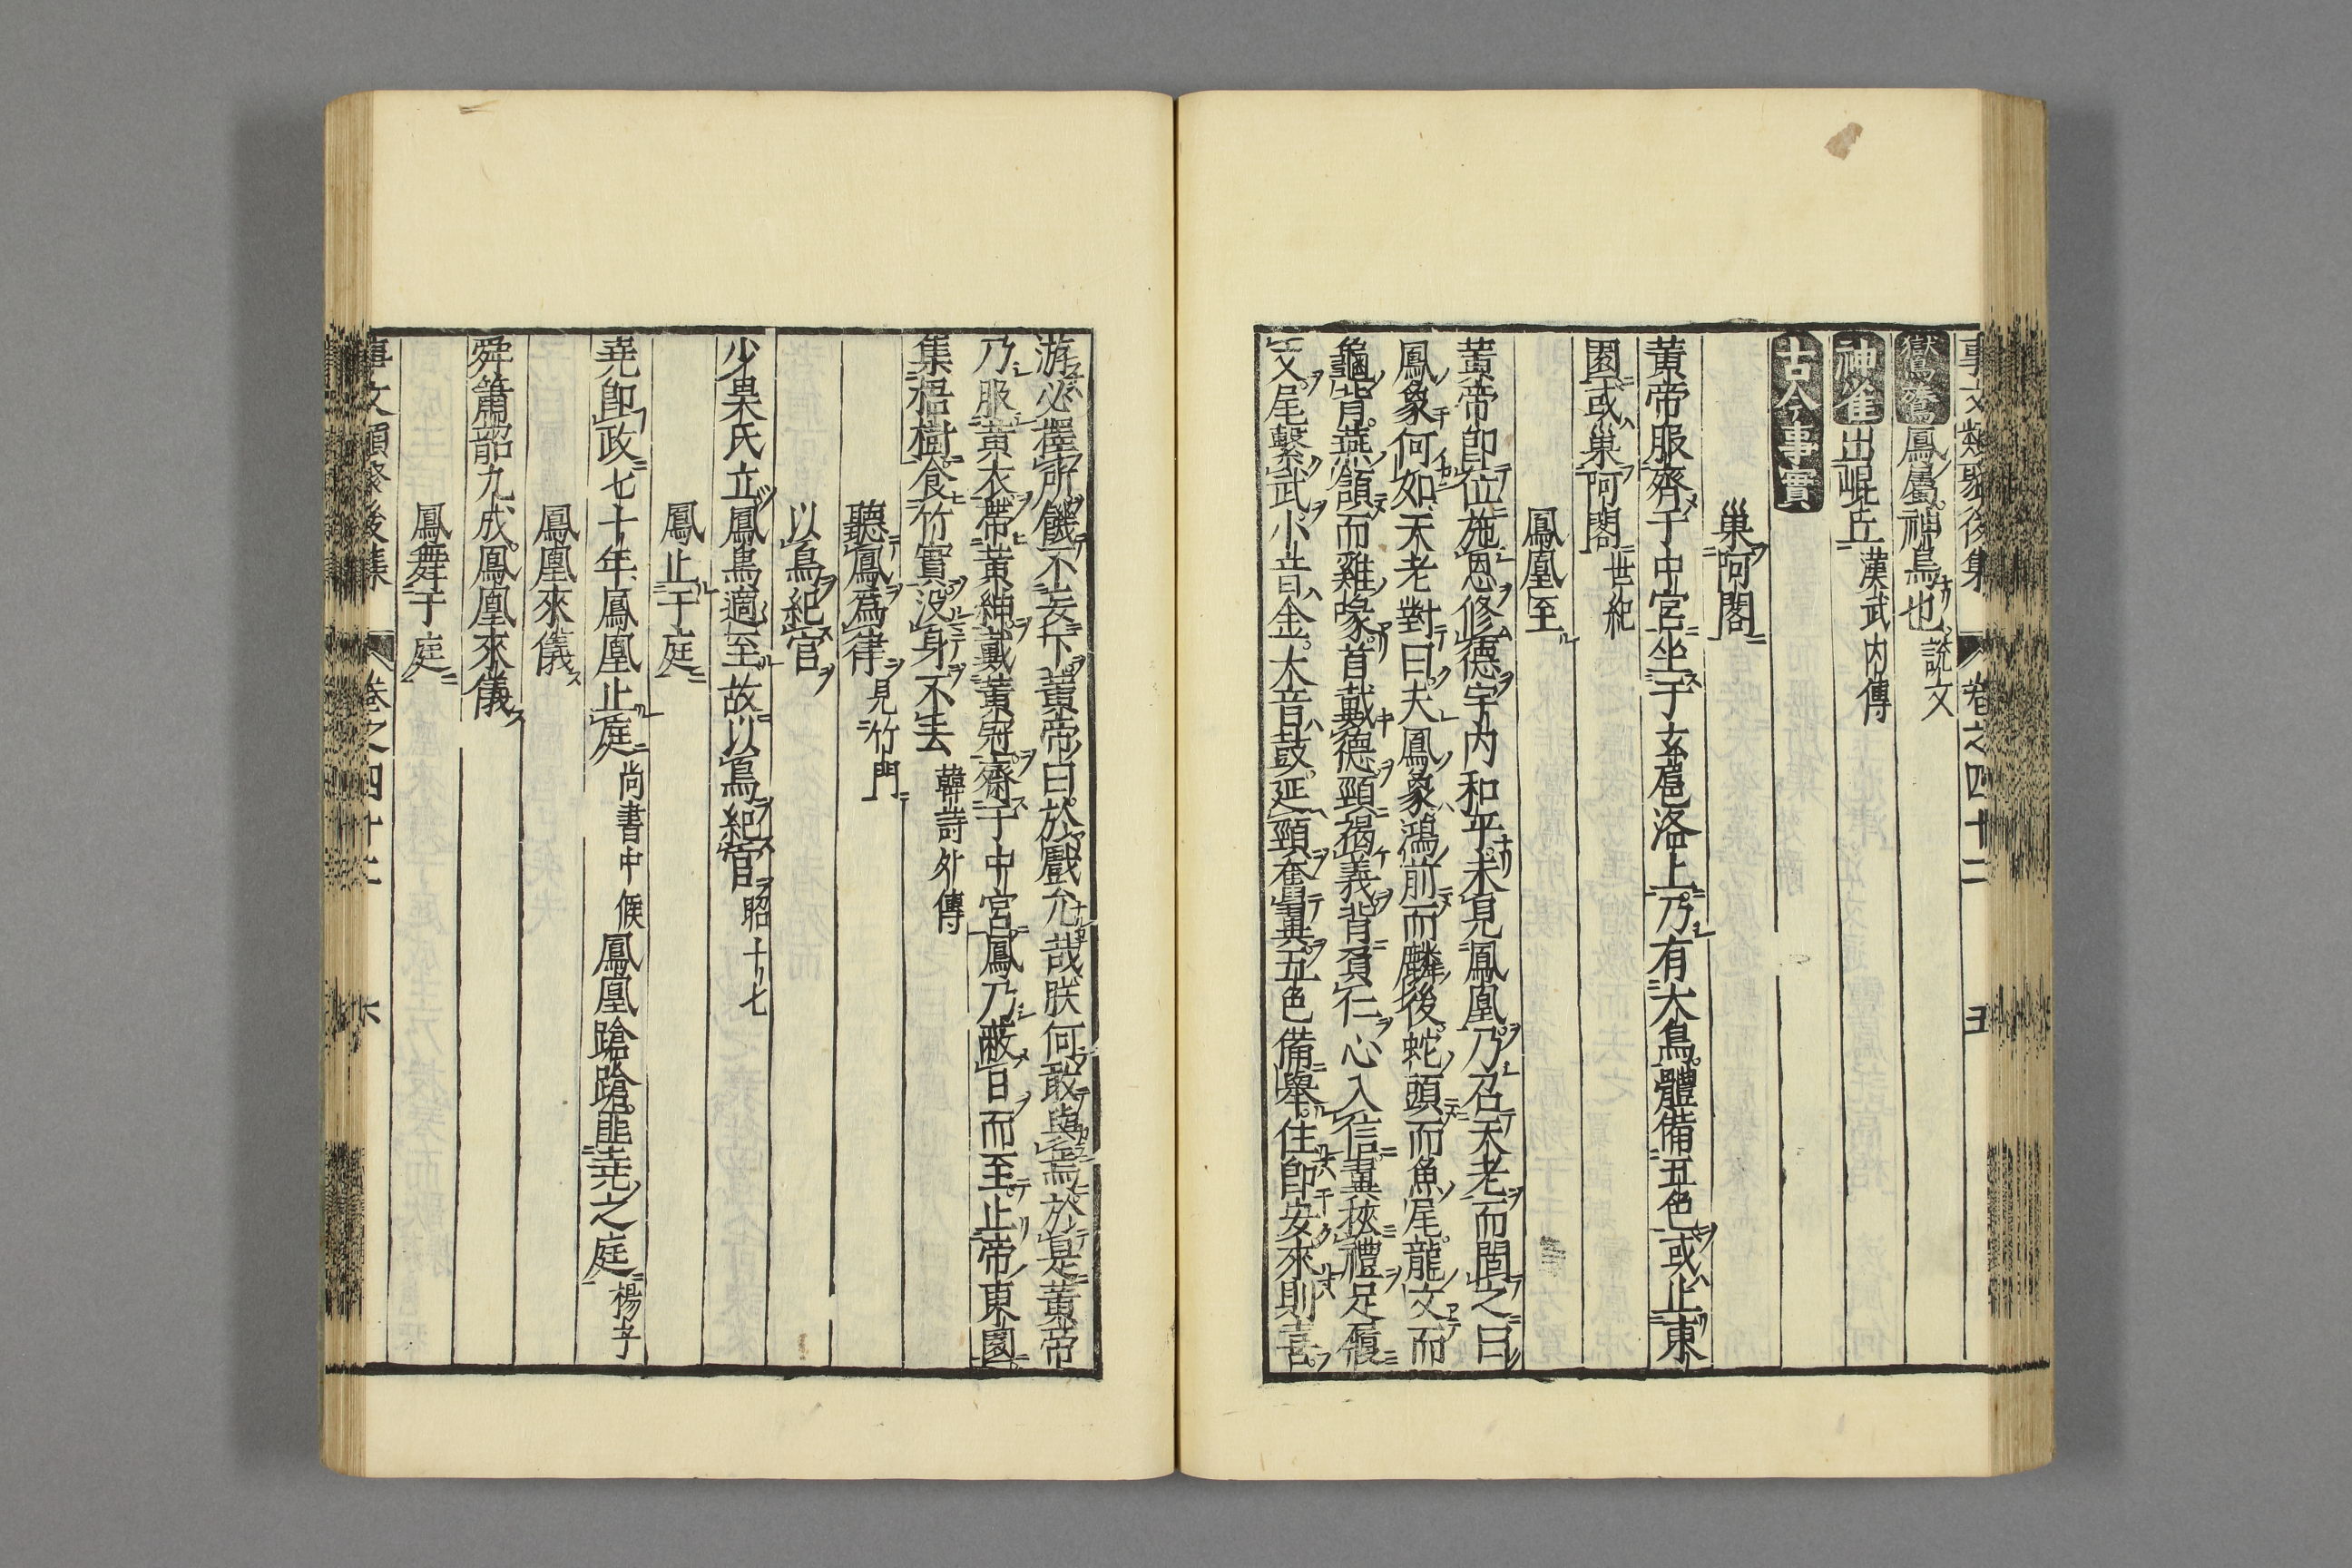 事文類聚後集 卷之四十二 五
鸑鷟鳳屬神鳥也說文
神雀出崐丘漢武内傳
古今事實
巢阿閣
黃帝服齊于中宮坐于玄扈洛上乃有大鳥體備五色或止東
園或巢阿閣世紀
鳳凰至
黃帝卽位施恩修德宇内和平未見鳳凰乃召天老而問之曰
鳳象何如天老對曰夫鳳象鴻前而麟後蛇頭而魚尾龍文而
龜背燕頷而雞喙首戴德頸揭義背負仁心入信翼挾禮足履
文尾繫武小音金大音鼓延頸奮翼五色備舉住卽安來則喜
游必擇所飢不妄下黃帝曰於戲允哉朕何敢與焉於是黃帝
乃服黃衣帶黃紳戴黃冠齋于中宮鳳乃蔽日而至止帝東園
集梧樹食竹實没身不去韓詩外傳
聽鳳爲律見竹門
以鳥紀官
少昊氏立鳳鳥適至故以鳥紀官昭十七
鳳止于庭
堯卽政七十年鳳凰止庭尚書中候鳳凰蹌蹌匪堯之庭楊子
鳳凰來儀
舜簫韶九成鳳凰來儀
鳳舞于庭
事文類聚後集 卷之四十二 六